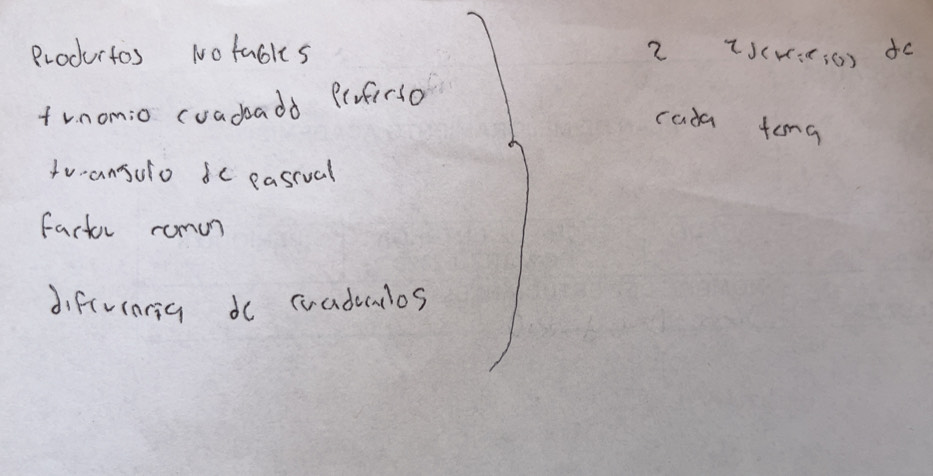 Productos Notables
trinomio cuadrado Perfecto
triangulo de pascual
factor comun
diferencia de cuadrados
2 ejercicios de
cada tema